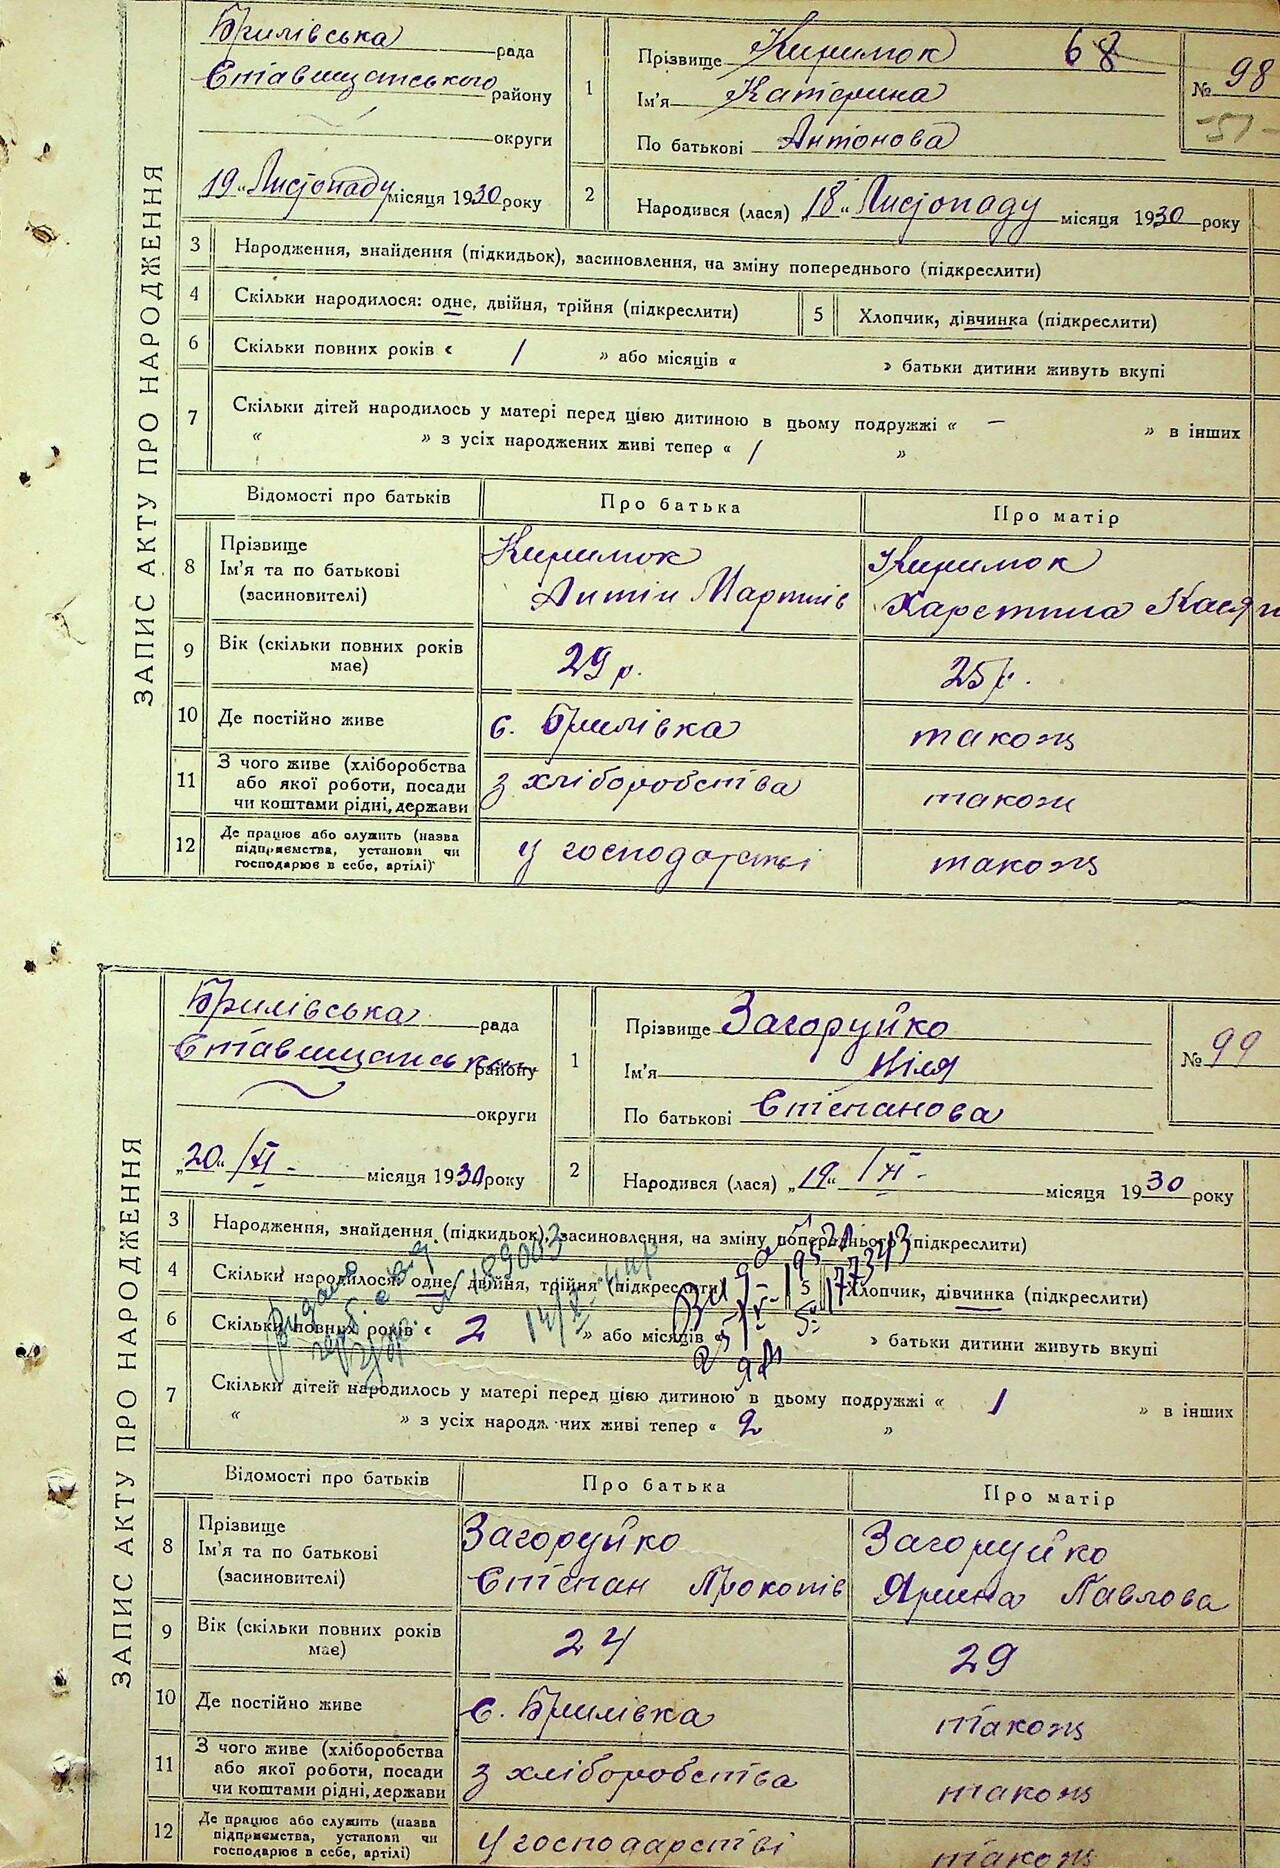 ЗАПИС АКТУ ПРО НАРОДЖЕННЯ
Брилівська рада
Ставищанського району
округи
19 „ Листопаду місяця 1930 року
1
Прізвище Киримок 68
Ім'я Катерина
По батькові Антонова
№ 98
51
2
Народився (лася) 18 „ Листопаду місяця 1930 року
3 Народження, знайдення (підкидьок), засиновлення, на зміну попереднього (підкреслити)
4 Скільки народилося: одне, двійня, трійня (підкреслити) 5 Хлопчик, дівчинка (підкреслити)
6 Скільки повних років « 1 » або місяців « » батьки дитини живуть вкупі
7 Скільки дітей народилось у матері перед цією дитиною в цьому подружжі « — » в інших
« » з усіх народжених живі тепер « 1 »
Відомості про батьків Про батька Про матір
8 Прізвище Ім'я та по батькові (засиновителі)
Киримок Антін Мартинів
Киримок Харетина
9 Вік (скільки повних років має) 29 р. 25 р.
10 Де постійно живе с. Брилівка також
11 З чого живе (хліборобства або якої роботи, посади чи коштами рідні, держави з хліборобства також
12 Де працює або служить (назва підприємства, установи чи господарює в себе, артілі) у господарстві також
ЗАПИС АКТУ ПРО НАРОДЖЕННЯ
Брилівська рада
Ставищанськ району
округи
„20„ /XI - місяця 1930 року
1
Прізвище Загоруйко
Ім'я Ніля
По батькові Степанова
№ 99
2
Народився (лася) „19„ /XI - місяця 1930 року
3 Народження, знайдення (підкидьок), засиновлення, на зміну попереднього (підкреслити)
4 Скільки народилося: одне, двійня, трійня (підкреслити) Хлопчик, дівчинка (підкреслити)
6 Скільки повних років « 2 » або місяців « » батьки дитини живуть вкупі
7 Скільки дітей народилось у матері перед цією дитиною в цьому подружжі « 1 » в інших
« » з усіх народжених живі тепер « 2 »
Відомості про батьків Про батька Про матір
8 Прізвище Ім'я та по батькові (засиновителі)
Загоруйко Степан Прокопів
Загоруйко Ярина Павлова
9 Вік (скільки повних років має) 24 29
10 Де постійно живе с. Брилівка також
11 З чого живе (хліборобства або якої роботи, посади чи коштами рідні, держави з хліборобства також
12 Де працює або служить (назва підприємства, установи чи господарює в себе, артілі) у господарстві також